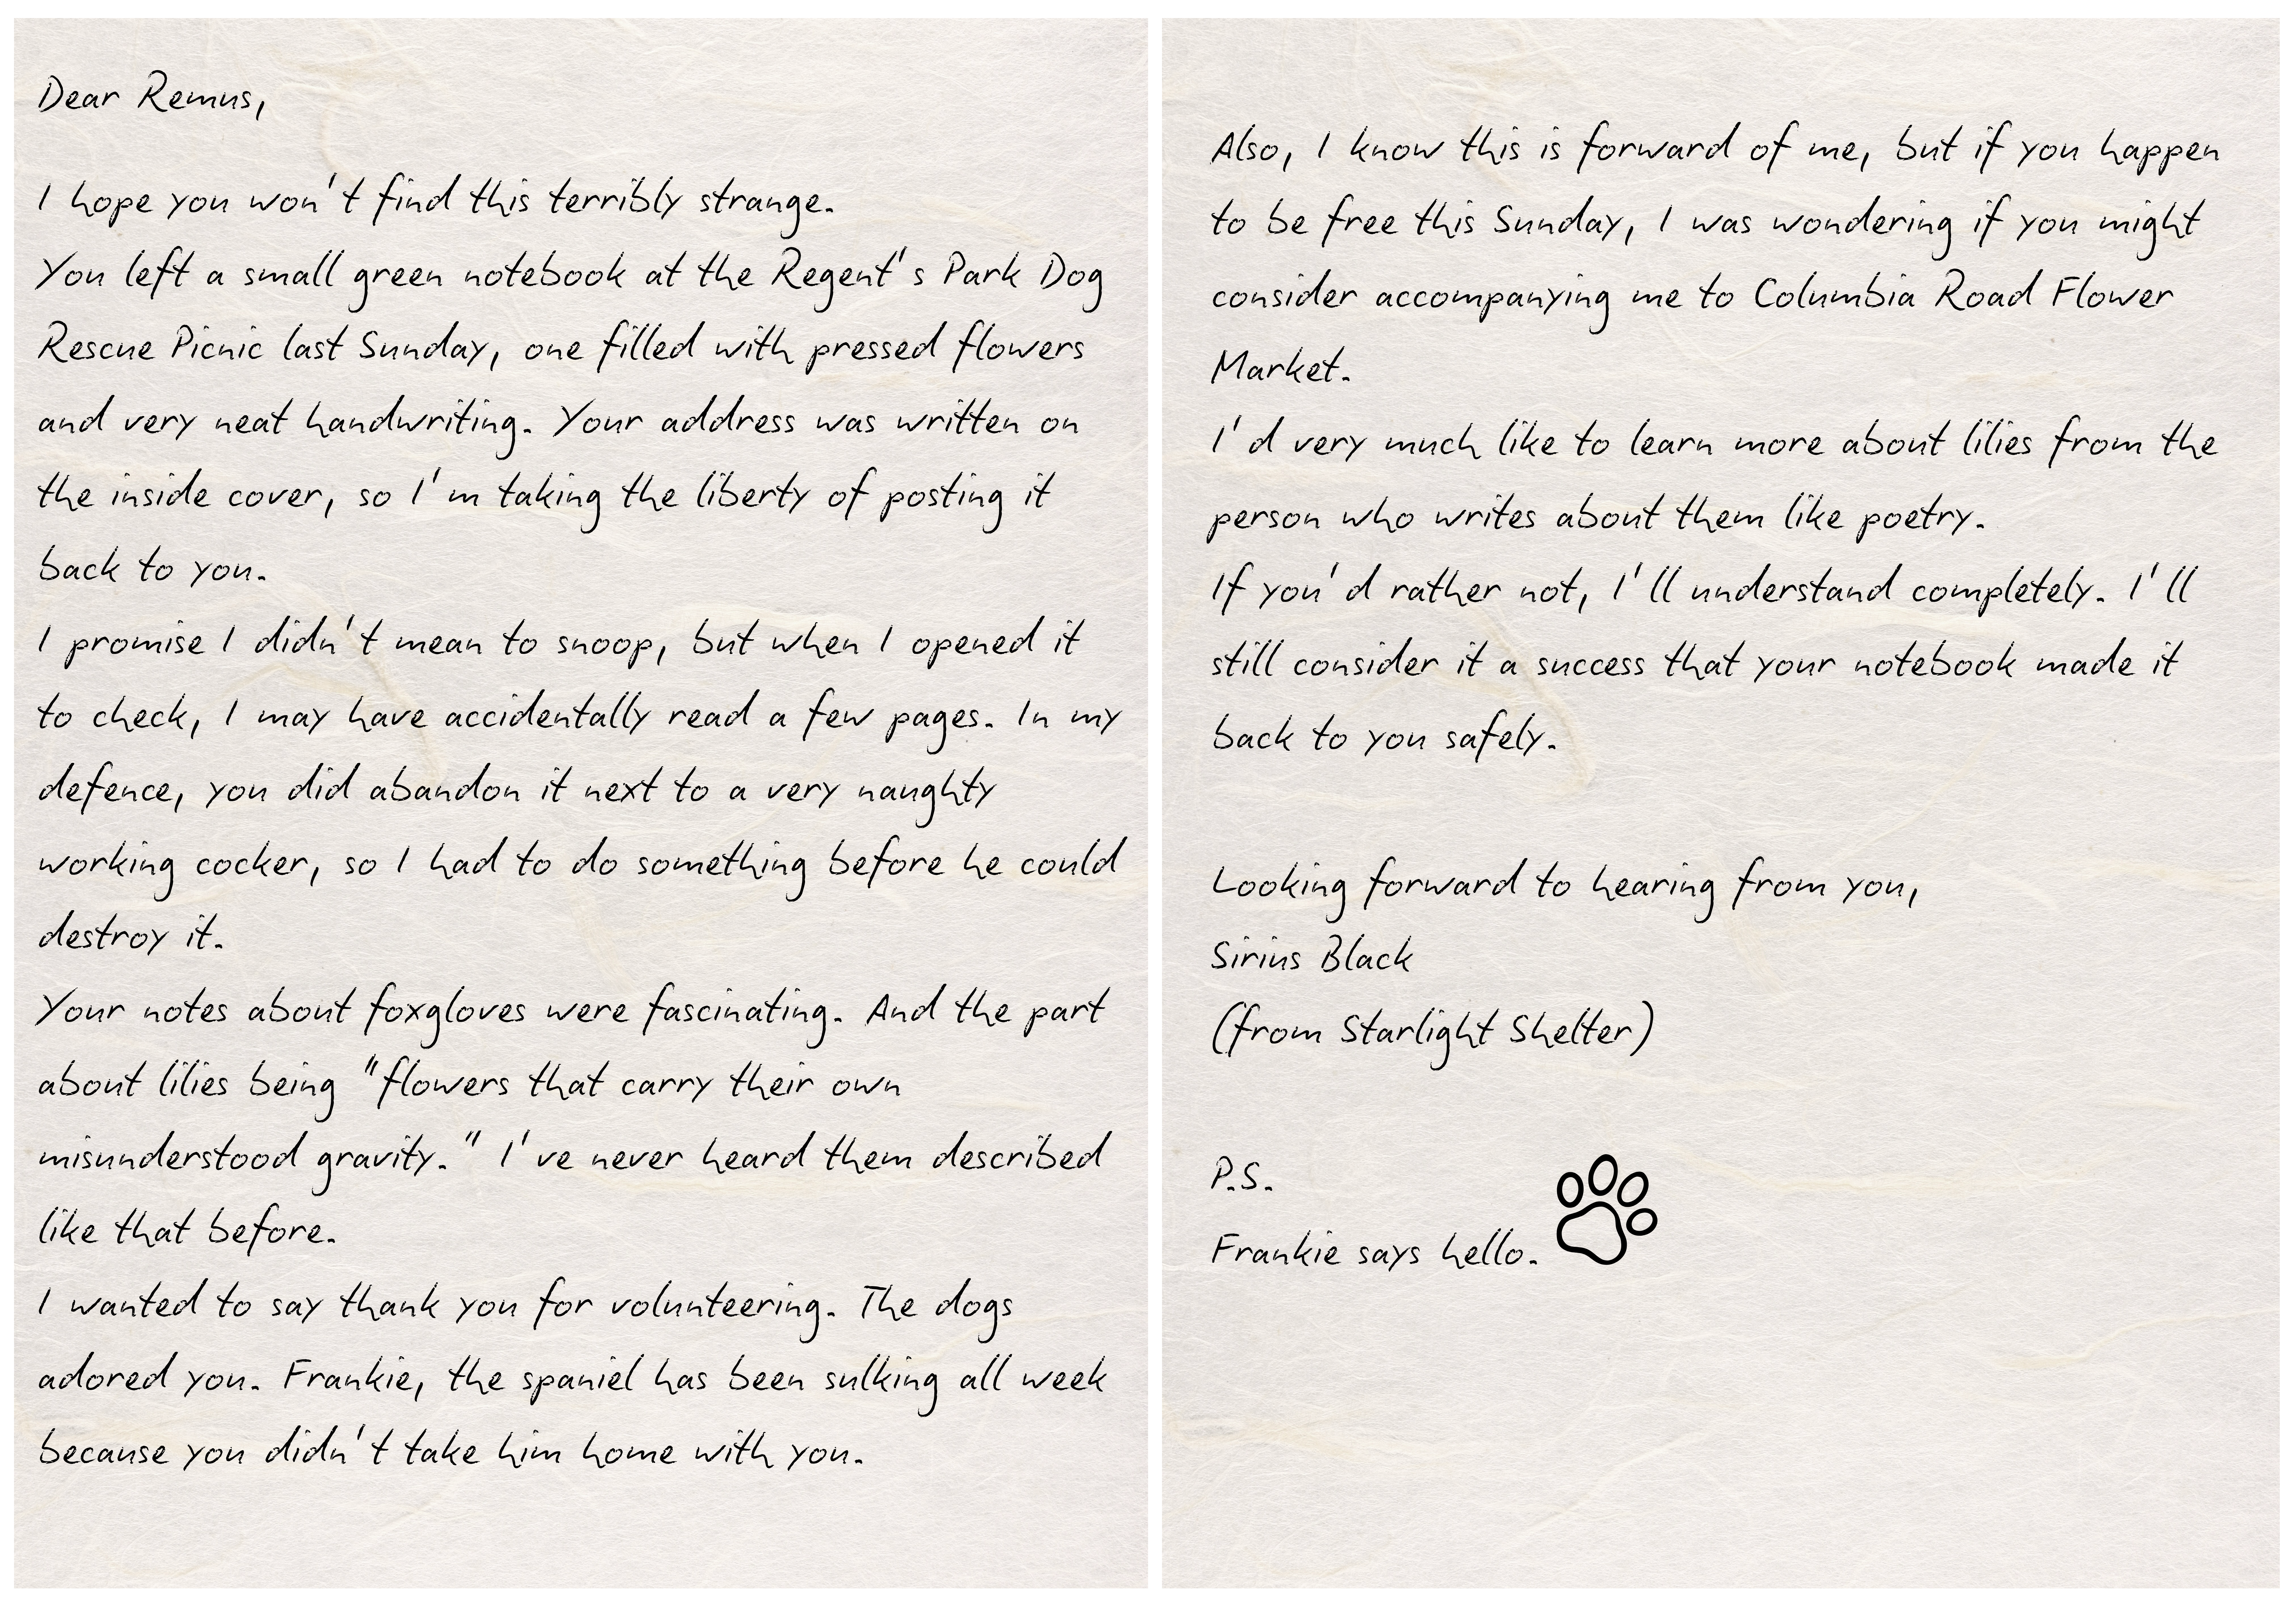 Dear Remus,
I hope you won't find this terribly strange.
You left a small green notebook at the Regent's Park Dog
Rescue Picnic last Sunday, one filled with pressed flowers
and very neat handwriting. Your address was written on
the inside cover, so I'm taking the liberty of posting it
back to you.
I promise I didn't mean to snoop, but when I opened it
to check, I may have accidentally read a few pages. In my
defence, you did abandon it next to a very naughty
working cocker, so I had to do something before he could
destroy it.
Your notes about foxgloves were fascinating. And the part
about lilies being "flowers that carry their own
misunderstood gravity." I've never heard them described
like that before.
I wanted to say thank you for volunteering. The dogs
adored you. Frankie, the spaniel has been sulking all week
because you didn't take him home with you.
Also, I know this is forward of me, but if you happen
to be free this Sunday, I was wondering if you might
consider accompanying me to Columbia Road Flower
Market.
I'd very much like to learn more about lilies from the
person who writes about them like poetry.
If you'd rather not, I'll understand completely. I'll
still consider it a success that your notebook made it
back to you safely.
Looking forward to hearing from you,
Sirius Black
(from Starlight Shelter)
P.S.
Frankie says hello.